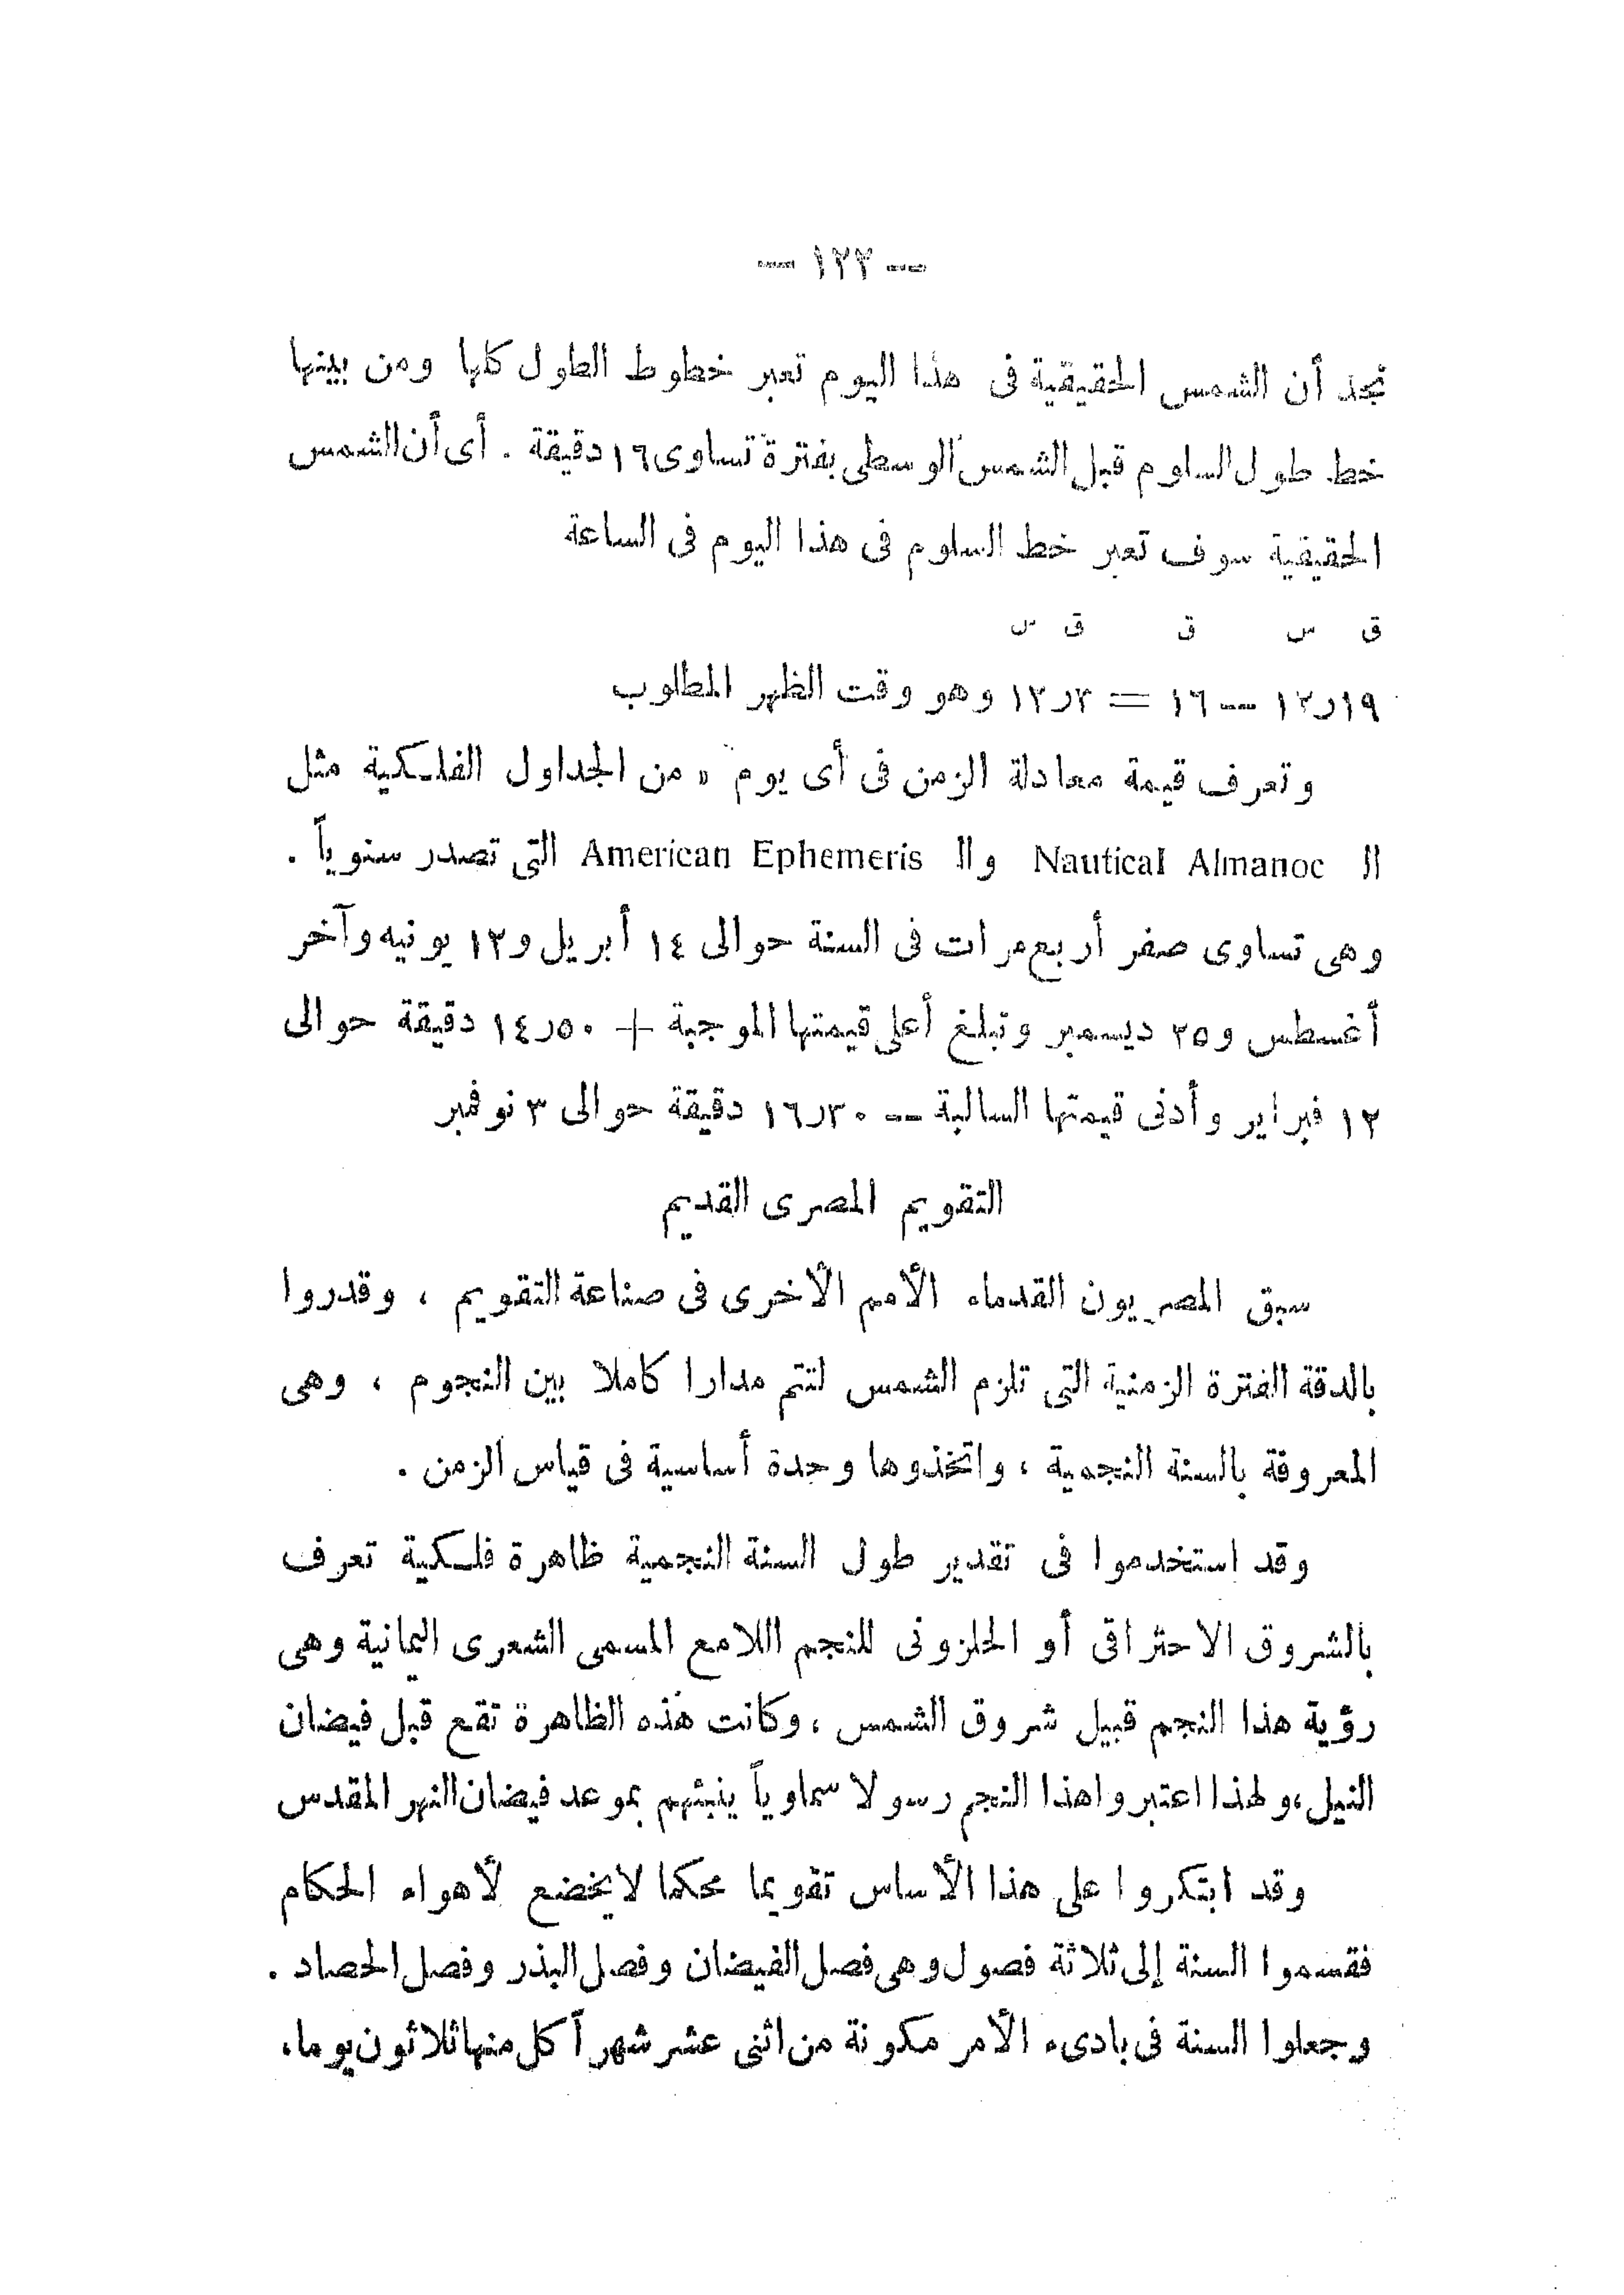 — ١٢٢ —
نجد أن الشمس الحقيقية فى هذا اليوم تعبر خطوط الطول كلها ومن بينها
خط طول السلوم قبل الشمس الوسطى بفترة تساوى ١٦ دقيقة . أى أن الشمس
الحقيقية سوف تعبر خط السلوم فى هذا اليوم فى الساعة
ق س ق ق س
١٩ر١٢ — ١٦ = ٣ر١٢ وهو وقت الظهر المطلوب
وتعرف قيمة معادلة الزمن فى أى يوم « من الجداول الفلكية مثل
الـ Nautical Almanoc والـ American Ephemeris التى تصدر سنوياً .
وهى تساوى صفر أربع مرات فى السنة حوالى ١٤ أبريل و١٣ يونيه وآخر
أغسطس و٢٥ ديسمبر وتبلغ أعلى قيمتها الموجبة + ٥٠ر١٤ دقيقة حوالى
١٢ فبراير وأدنى قيمتها السالبة — ٣٠ر١٦ دقيقة حوالى ٣ نوفمبر
التقويم المصرى القديم
سبق المصريون القدماء الأمم الأخرى فى صناعة التقويم ، وقدروا
بالدقة الفترة الزمنية التى تلزم الشمس لتتم مدارا كاملا بين النجوم ، وهى
المعروفة بالسنة النجمية ، واتخذوها وحدة أساسية فى قياس الزمن .
وقد استخدموا فى تقدير طول السنة النجمية ظاهرة فلكية تعرف
بالشروق الاحتراقى أو الحلزونى للنجم اللامع المسمى الشعرى اليمانية وهى
رؤية هذا النجم قبيل شروق الشمس ، وكانت هذه الظاهرة تقع قبل فيضان
النيل ، ولهذا اعتبروا هذا النجم رسولا سماوياً ينبئهم بموعد فيضان النهر المقدس
وقد ابتكروا على هذا الأساس تقويما محكما لا يخضع لأهواء الحكام
فقسموا السنة إلى ثلاثة فصول وهى فصل الفيضان وفصل البذر وفصل الحصاد .
وجعلوا السنة فى بادىء الأمر مكونة من اثنى عشر شهراً كل منها ثلاثون يوما،